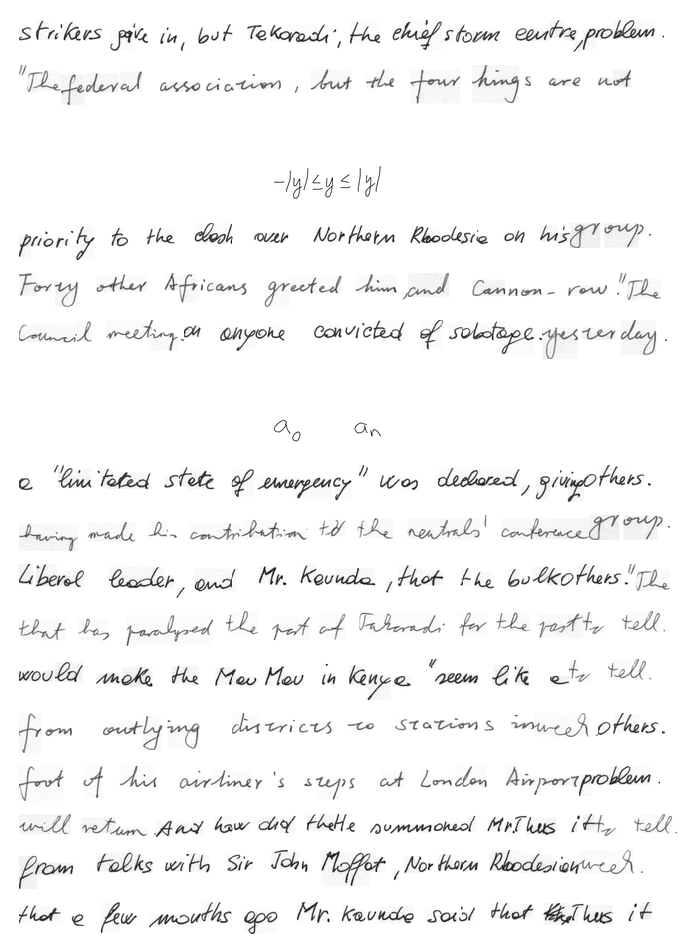 strikers give in, but Tekoradi, the chief storm centre, problem.
"The federal association, but the four kings are not
-|y| ≤ y ≤ |y|
priority to the clash over Northern Rhodesia on his group.
Forty other Africans greeted him and Cannon-row." The
Council meeting. on anyone convicted of sabotage. yesterday.
a₀ aₙ
a "limitated state of emergency" was declared, giving others.
having made his contribution to the neutrals' conference group.
Liberal leader, and Mr. Kaunda, that the bulk others." The
that has paralysed the port of Takoradi for the past to tell.
would make the Mau Mau in Kenya "seem like a to tell.
from outlying districts to stations in week others.
foot of his airliner's steps at London Airport problem.
will return And how did the He summoned Mr. Thus it to tell.
from talks with Sir John Moffat, Northern Rhodesian week.
that a few months ago Mr. Kaunda said that Thus it